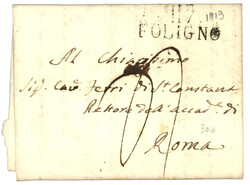 117
FOLIGNO
1813
Al Chiarissimo
Sig. Cav. Ferri di St Constant
Rettore dell'accad. di
Roma
300